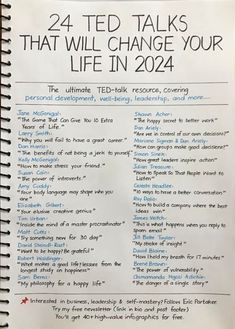 24 TED TALKS
THAT WILL CHANGE YOUR
LIFE IN 2024
The ultimate TED-talk resource, covering
personal development, well-being, leadership, and more...
Jane McGonigal:
"The Game That Can Give You 10 Extra
Years of Life."
Larry Smith:
"Why you will fail to have a great career."
Dan Harris:
"The benefits of not being a jerk to yourself"
Kelly McGonigal:
"How to make stress your friend."
Susan Cain:
"The power of introverts."
Amy Cuddy:
"Your body language may shape who you
are."
Elizabeth Gilbert:
"Your elusive creative genius"
Tim Urban:
"Inside the mind of a master procrastinator"
Matt Cutts:
"Try something new for 30 day"
David Steindl-Rast:
"Want to be happy? Be grateful"
Robert Waldinger:
"What makes a good life? Lessons from the
longest study on happiness"
Sam Berns:
"My philosophy for a happy life"
Shawn Achor:
"The happy secret to better work"
Dan Ariely:
"Are we in control of our own decisions?"
Mariano Sigman & Dan Ariely:
"How can groups make good decisions?"
Simon Sinek:
"How great leaders inspire action"
Julian Treasure:
"How to Speak So That People Want to
Listen"
Celeste Headlee:
"10 ways to have a better conversation"
Ray Dalio:
"How to build a company where the best
ideas win"
James Veitch:
"This is what happens when you reply to
spam email"
Jill Bolte Taylor:
"My stroke of insight"
David Blaine:
"How I held my breath for 17 minutes"
Brené Brown:
"The power of vulnerability"
Chimamanda Ngozi Adichie:
"The danger of a single story"
Interested in business, leadership & self-mastery? Follow Eric Partaker
Try my free newsletter (link in bio and post footer)
You'll get 40+ high-value infographics for free.